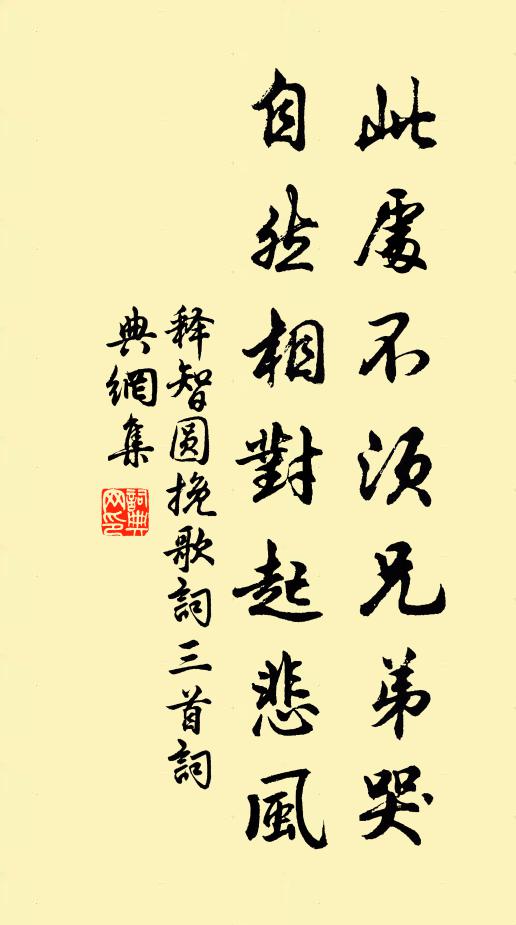 此處不須兄弟哭
自然相對起悲風
释智圓挽歌詞三首詞
典網集
詞典网印